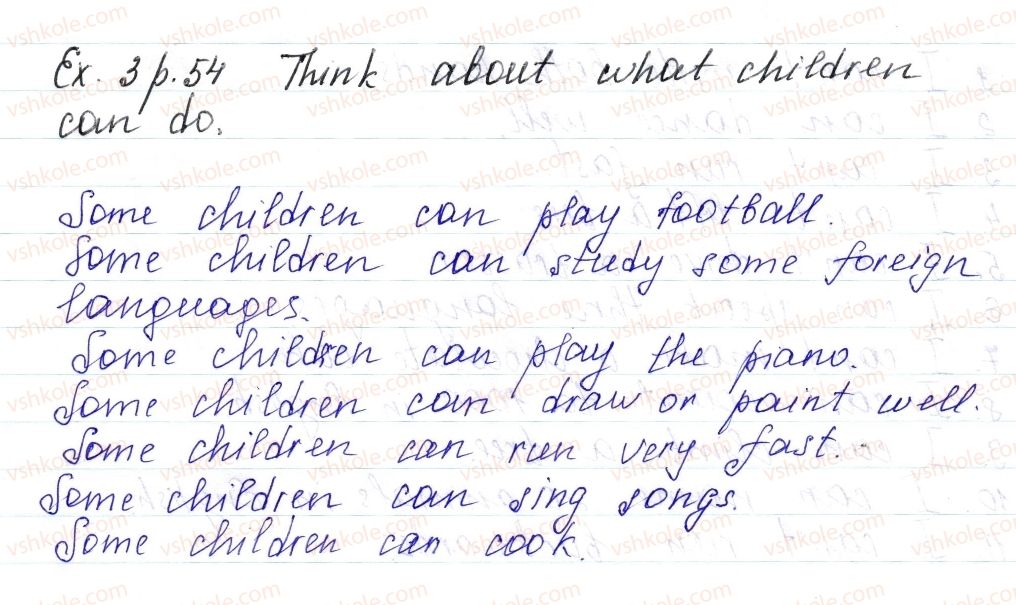 Ex. 3 p. 54 Think about what children
can do.
Some children can play football.
Some children can study some foreign
languages.
Some children can play the piano.
Some children can draw or paint well.
Some children can run very fast.
Some children can sing songs.
Some children can cook.